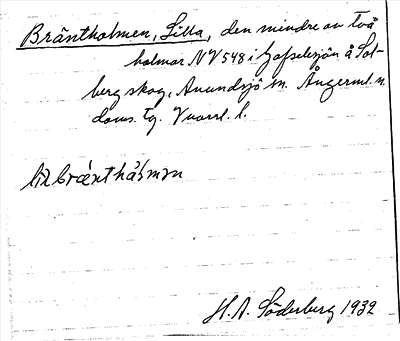 Bräntholmen, Lilla, den mindre av två
holmar NV 548 i Gafselesjön å Sol-
bergskog, Anundsjö sn. Ångerml. n.
doms. tg. Vnorrl. l.
H.A. Söderberg 1932